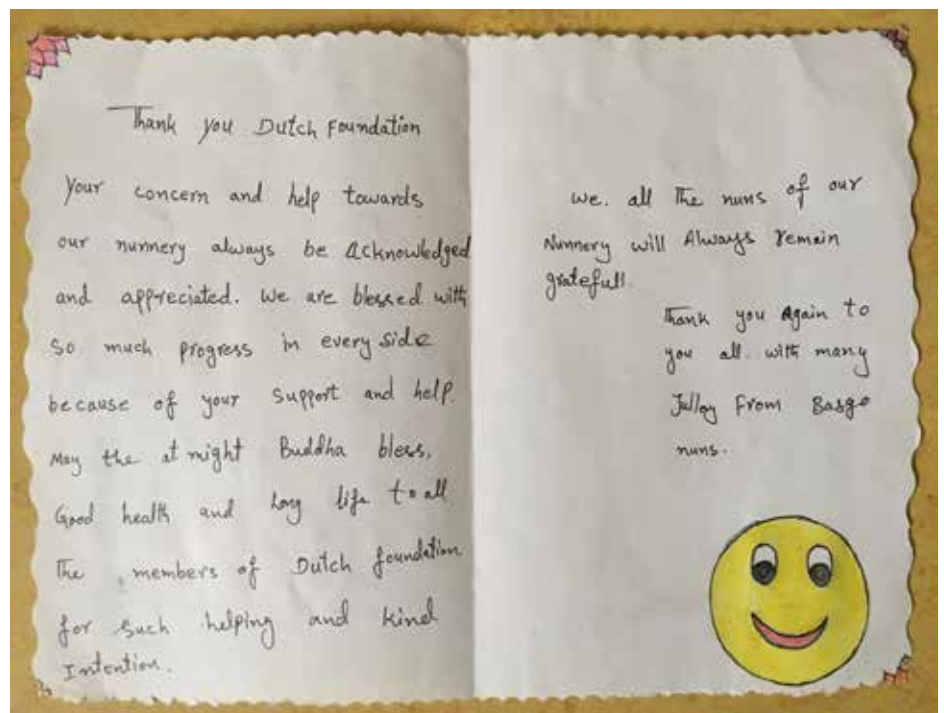 Thank you Dutch Foundation
Your concern and help towards
our nunnery always be Acknowledged
and appreciated. We are blessed with
So much progress in every side
because of your Support and help.
May the at might Buddha bless,
Good health and Long life to all
The members of Dutch foundation
for Such helping and kind
Intention.
We. all The nuns of our
Nunnery will Always remain
gratefull.
Thank you Again to
you all. with many
Jullay From Basgo
nuns.